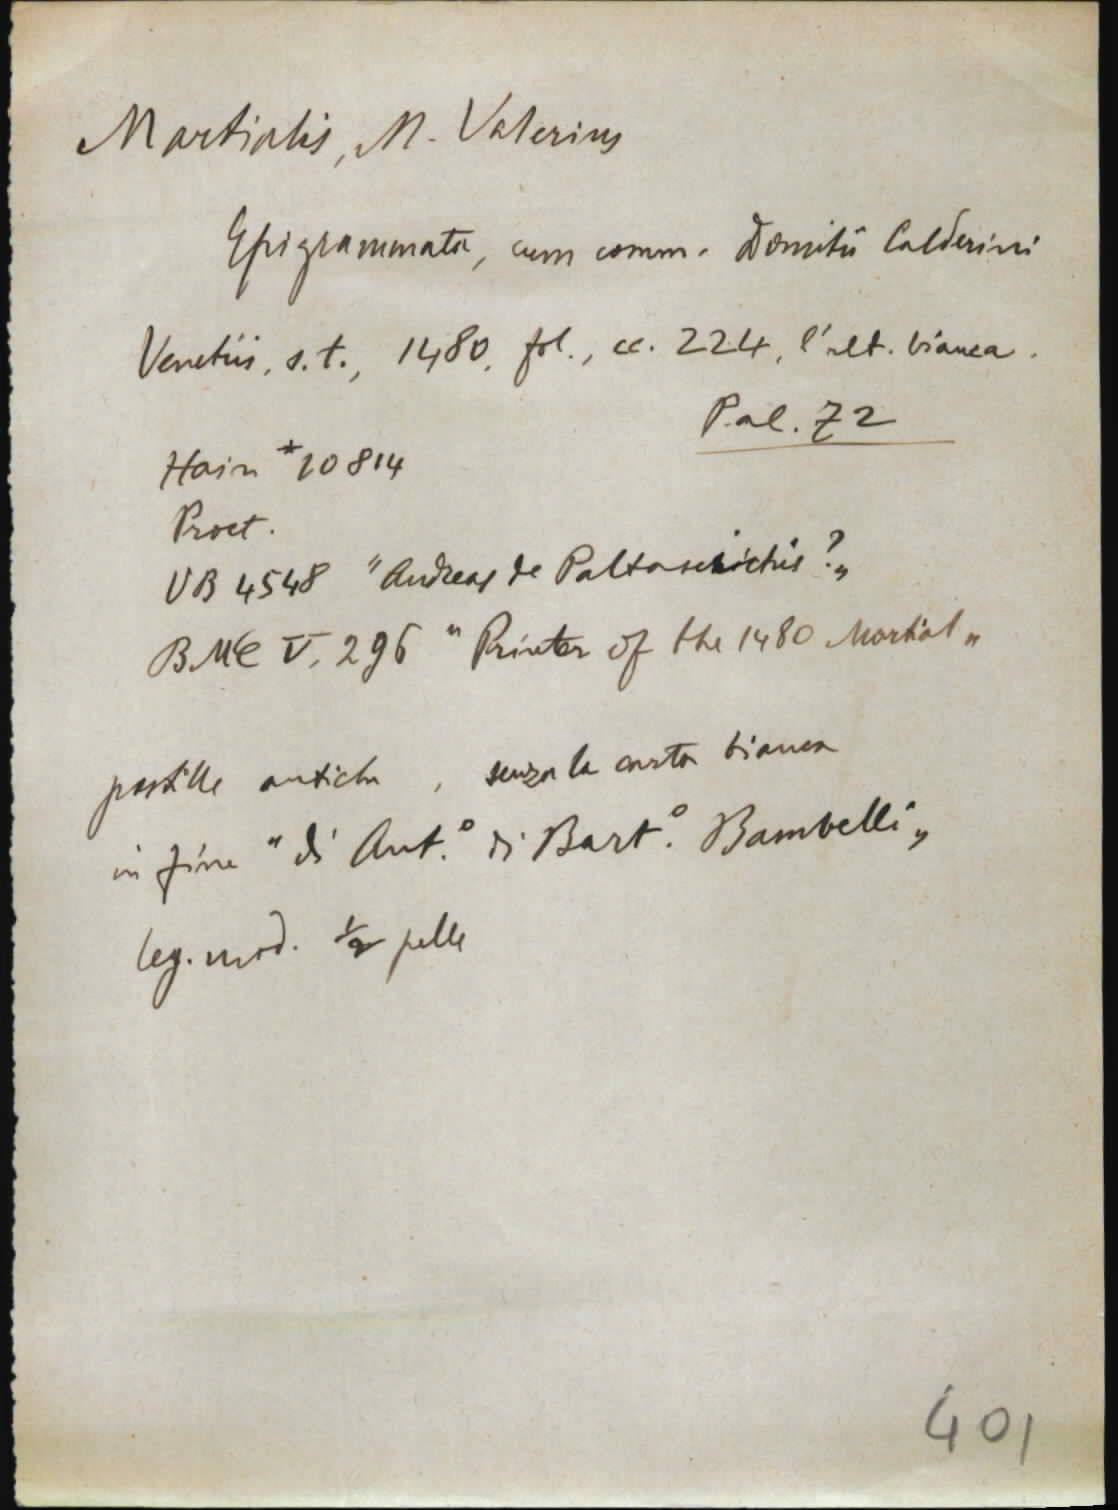 Martialis, M. Valerius
Epigrammata, cum comm. Domitii Calderini
Venetiis, s.t., 1480, fol., cc. 224, l'ult. bianca.
Pal. 72
Hain *10814
Proct.
VB 4548 "Andreas de Paltascichis?"
BMC V, 296 "Printer of the 1480 Martial"
postille antiche, senza la carta bianca
in fine "di Ant.º di Bart.º Bambelli"
leg. mod. ½ pelle
401